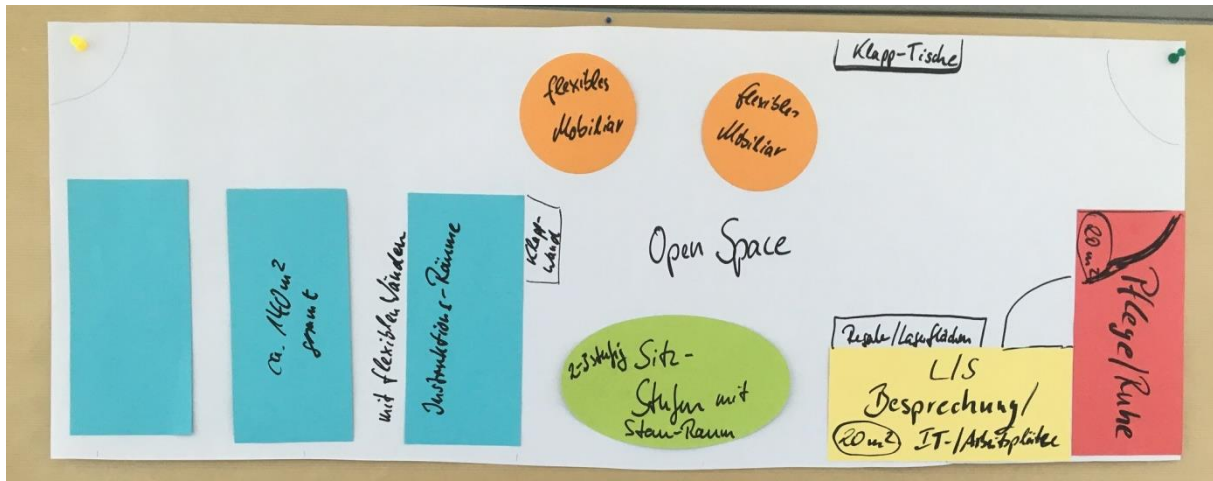 Klapp-Tische
flexibles
Mobiliar
flexibles
Mobiliar
ca. 140 m²
gesamt
mit flexiblen Wänden
Instruktions-Räume
Klapp-
wand
Open Space
20 m²
Pflege/Ruhe
2-3stufig Sitz-
Stufen mit
Stau-Raum
Regale/Lagerflächen
L/S
Besprechung/
20 m² IT-/Arbeitsplätze